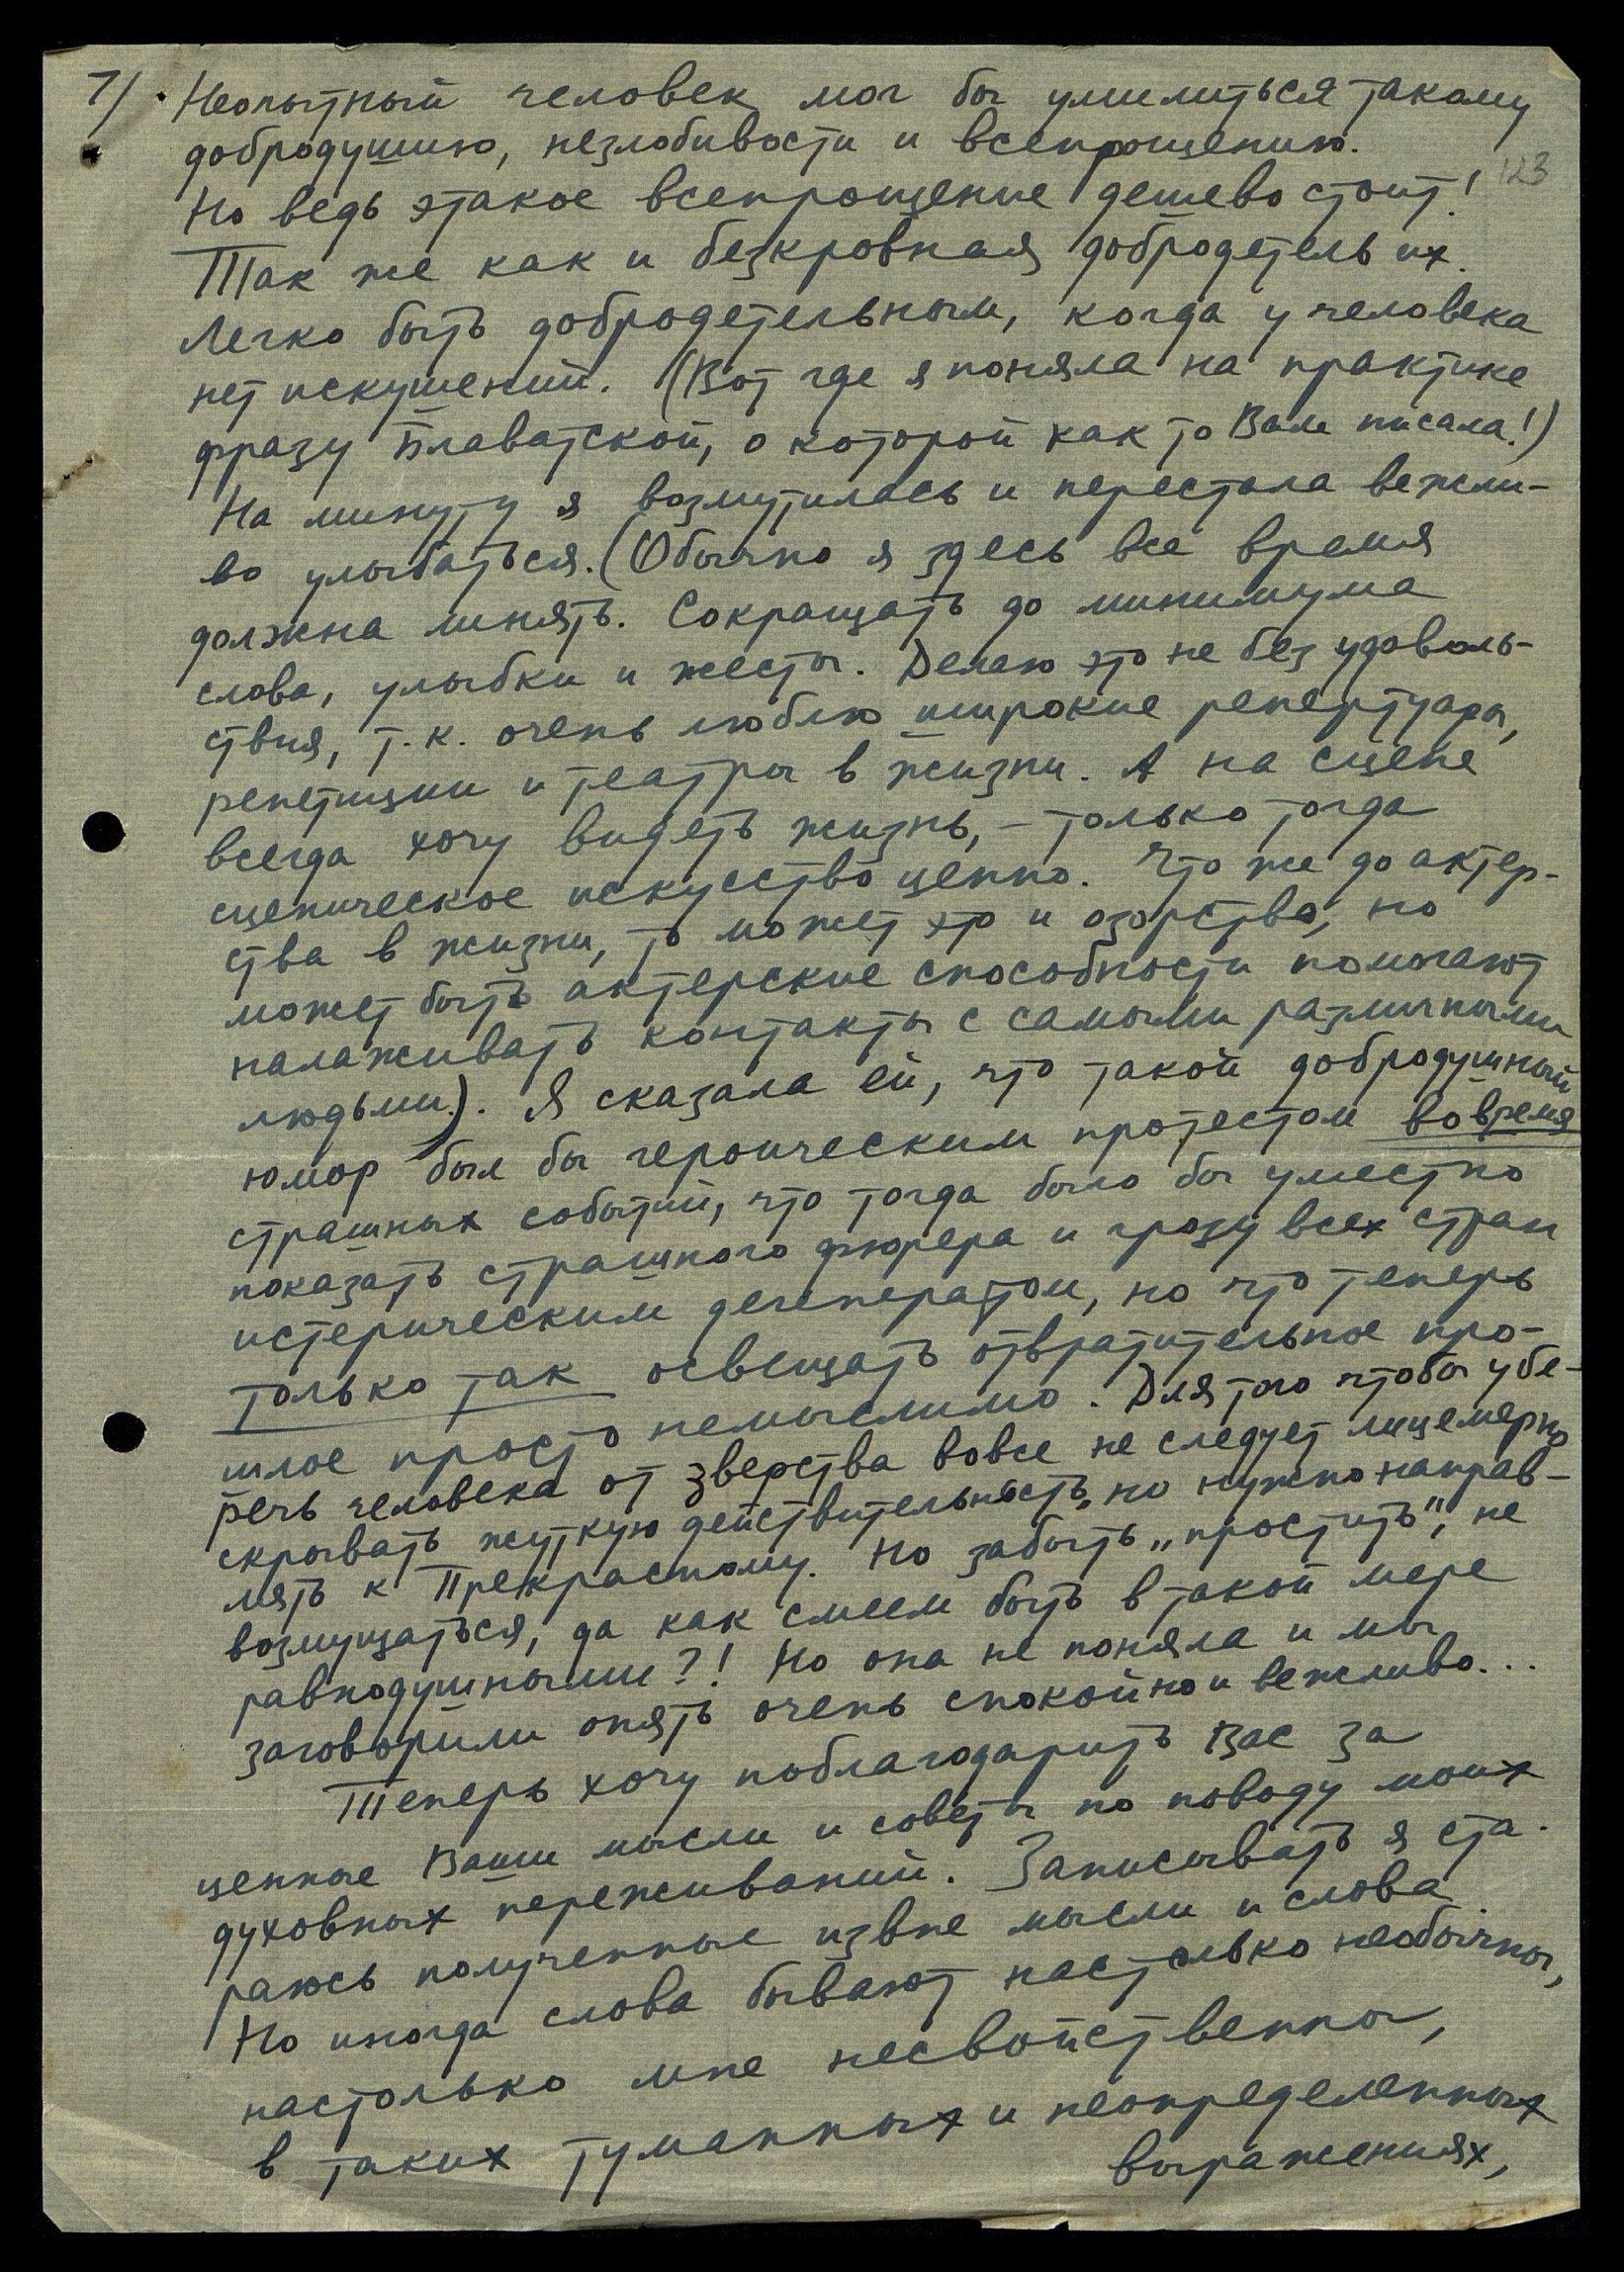 7/ Неопытный человек мог бы умилиться такому
добродушию, незлобивости и всепрощению.
123
Но ведь этакое всепрощение дешево стоит!
Так же как и безкровная добродетель их.
Легко быть добродетельным, когда у человека
нет искушений. (Вот где я поняла на практике
фразу Блаватской, о которой как то Вам писала!)
На минуту я возмутилась и перестала вежли-
во улыбаться. (Обычно я здесь все время
должна линять. Сокращать до минимума
слова, улыбки и жесты. Делаю это не без удоволь-
ствия, т.к. очень люблю широкие репертуары,
репетиции и театры в жизни. А на сцене
всегда хочу видеть жизнь, – только тогда
сценическое искусство ценно. Что же до актер-
ства в жизни, то может это и озорство, но
может быть актерские способности помогают
налаживать контакты с самыми различными
людьми.). Я сказала ей, что такой добродушный
юмор был бы героическим протестом во время
страшных событий, что тогда было бы уместно
показать страшного фюрера и грозу всех стран
истерическим дегенератом, но что теперь
только так освещать отвратительное про-
шлое просто немыслимо. Для того чтобы убе-
речь человека от зверства вовсе не следует лицемерно
скрывать жуткую действительность, но нужно направ-
лять к Прекрасному. Но забыть, „простить", не
возмущаться, да как смеем быть в такой мере
равнодушными?! Но она не поняла и мы
заговорили опять очень спокойно и вежливо...
Теперь хочу поблагодарить Вас за
ценные Ваши мысли и советы по поводу моих
духовных переживаний. Записывать я ста-
раюсь полученные извне мысли и слова
Но иногда слова бывают настолько необычны,
настолько мне несвойственны,
в таких туманных и неопределенных
выражениях,